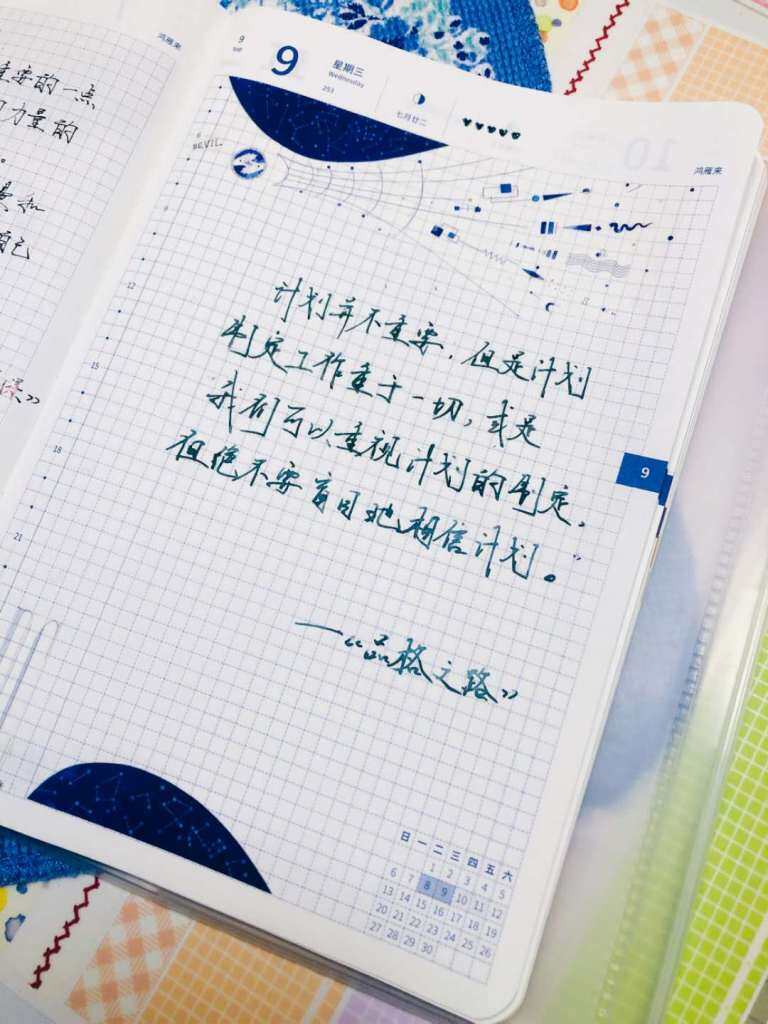 重要的一点
力量的
9
星期三
Wednesday
253
七月廿二
鸿雁来
鸿雁来
10
DEVIL
计划并不重要，但是计划
制定工作重于一切，或是
我们可以重视计划的制定，
但绝不要盲目地相信计划。
——《品格之路》
9
12
15
18
21
日 一 二 三 四 五 六
1 2 3 4 5
6 7 8 9 10 11 12
13 14 15 16 17 18 19
20 21 22 23 24 25 26
27 28 29 30